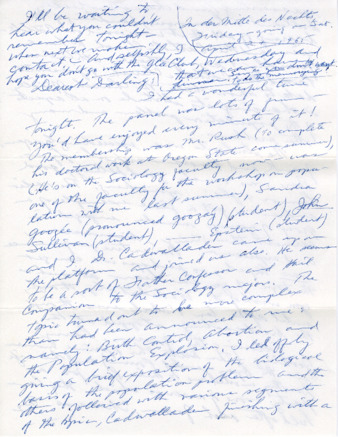 I'll be waiting to
hear what you couldn't
remember tonight
when next we make
contact. And selfishly I
hope you don't go with the Glee Club, Wednesday and
In der Mitte der Nacht
Sunday
August
Dearest Darling!
I had a wonderful time
tonight. The panel was lots of fun
you'd have enjoyed every minute of it!
The membership was Mr. Rush (to complete
his doctoral work at Oregon State come summer),
(He's on the Sociology faculty now was
one of the faculty for the workshop on popu-
lation with me last summer), Sandra
googee (pronounced goozay) (student) John
Sullivan (student) Epstein (student)
and I. Dr. Cadwallader came up on
the platform and joined us also. He seems
to be a sort of Father Confessor and Phil
Companion to the Sociology majors. The
topic turned out to be more complex
than had been announced to me:
namely: Birth Control, Abortion, and
the Population Explosion. I led off by
giving a brief exposition of the biological
basis of the population problem and the
others followed with various segments
of the topic, Cadwallader finishing with a